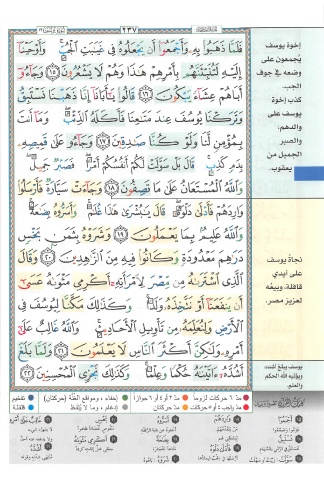 ٢٣٧
فَلَمَّا ذَهَبُوا۟ بِهِۦ وَأَجْمَعُوٓا۟ أَن يَجْعَلُوهُ فِى غَيَـٰبَتِ ٱلْجُبِّ ۚ وَأَوْحَيْنَآ
إِلَيْهِ لَتُنَبِّئَنَّهُم بِأَمْرِهِمْ هَـٰذَا وَهُمْ لَا يَشْعُرُونَ ١٥ وَجَآءُوٓ
أَبَاهُمْ عِشَآءً يَبْكُونَ ١٦ قَالُوا۟ يَـٰٓأَبَانَآ إِنَّا ذَهَبْنَا نَسْتَبِقُ
وَتَرَكْنَا يُوسُفَ عِندَ مَتَـٰعِنَا فَأَكَلَهُ ٱلذِّئْبُ ۖ وَمَآ أَنتَ
بِمُؤْمِنٍ لَّنَا وَلَوْ كُنَّا صَـٰدِقِينَ ١٧ وَجَآءُو عَلَىٰ قَمِيصِهِۦ
بِدَمٍ كَذِبٍ ۚ قَالَ بَلْ سَوَّلَتْ لَكُمْ أَنفُسُكُمْ أَمْرًا ۖ فَصَبْرٌ جَمِيلٌ ۖ
وَٱللَّهُ ٱلْمُسْتَعَانُ عَلَىٰ مَا تَصِفُونَ ١٨ وَجَآءَتْ سَيَّارَةٌ فَأَرْسَلُوا۟
وَارِدَهُمْ فَأَدْلَىٰ دَلْوَهُۥ ۖ قَالَ يَـٰبُشْرَىٰ هَـٰذَا غُلَـٰمٌ ۚ وَأَسَرُّوهُ بِضَـٰعَةً ۚ
وَٱللَّهُ عَلِيمٌۢ بِمَا يَعْمَلُونَ ١٩ وَشَرَوْهُ بِثَمَنٍۭ بَخْسٍ
دَرَٰهِمَ مَعْدُودَةٍ وَكَانُوا۟ فِيهِ مِنَ ٱلزَّٰهِدِينَ ٢٠ وَقَالَ
ٱلَّذِى ٱشْتَرَىٰهُ مِن مِّصْرَ لِٱمْرَأَتِهِۦٓ أَكْرِمِى مَثْوَىٰهُ عَسَىٰٓ
أَن يَنفَعَنَآ أَوْ نَتَّخِذَهُۥ وَلَدًا ۚ وَكَذَٰلِكَ مَكَّنَّا لِيُوسُفَ فِى
ٱلْأَرْضِ وَلِنُعَلِّمَهُۥ مِن تَأْوِيلِ ٱلْأَحَادِيثِ ۚ وَٱللَّهُ غَالِبٌ عَلَىٰٓ
أَمْرِهِۦ وَلَـٰكِنَّ أَكْثَرَ ٱلنَّاسِ لَا يَعْلَمُونَ ٢١ وَلَمَّا بَلَغَ
أَشُدَّهُۥٓ ءَاتَيْنَـٰهُ حُكْمًا وَعِلْمًا ۚ وَكَذَٰلِكَ نَجْزِى ٱلْمُحْسِنِينَ ٢٢
إخوة يوسف
يُجمعون على
وضعه في جوف
الجب.
كذب إخوة
يوسف على
والدهم،
والصبر
الجميل من
يعقوب.
نجاة يوسف
على أيدي
قافلة، وبيعُه
لعزيز مصر.
يوسف يبلغ أشده،
ويؤتيه الله الحكم
والعلم.
مدّ ٦ حركات لزوماً
مدّ ٢ أو ٤ أو ٦ جوازاً
إخفاء، ومواقع الغُنَّة (حركتان)
تفخيم
مدّ حركتان
إدغام، وما لا يُلفظ
قلقلة